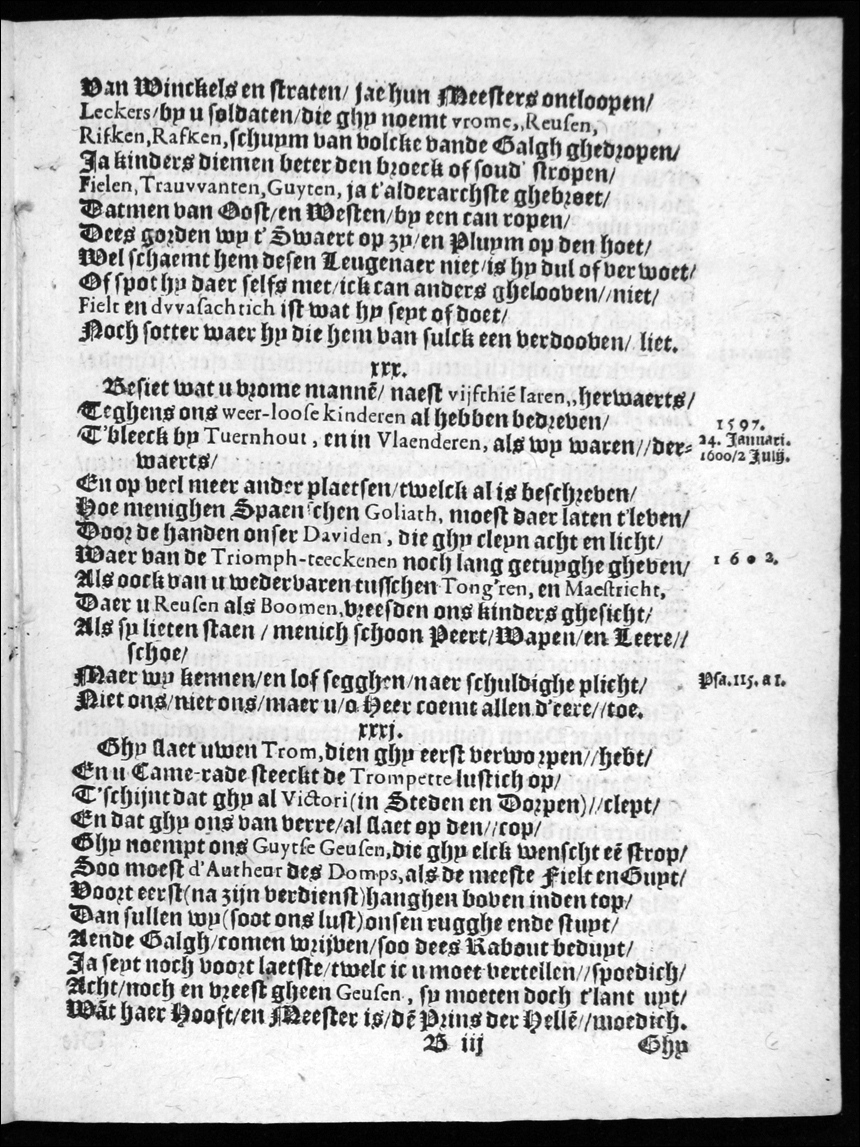 Van Winckels en straten/ jae hun Meesters ontloopen/
Leckers/by u soldaten/die ghy noemt vrome,,Reusen,
Rifken,Rafken,schuym van volcke vande Galgh ghedropen/
Ja kinders diemen beter den broeck of soud' stropen/
Fielen,Trauvvanten,Guyten, ja t'alderarchste ghebroet/
Datmen van Oost/en Westen/by een can ropen/
Dees gorden wy t' Swaert op zy/en Pluym op den hoet/
Wel schaemt hem desen Leugenaer niet/is hy dul of verwoet/
Of spot hy daer selfs met/ick can anders ghelooven//niet/
Fielt en dvvasachtich ist wat hy seyt of doet/
Noch sotter waer hy die hem van sulck een verdooven/ liet.
xxx.
Besiet wat u vrome mannē/ naest vijfthiē Iaren,,herwaerts/
Teghens ons weer-loose kinderen al hebben bedreven/
T'bleeck by Tuernhout, en in Vlaenderen, als wy waren//der-
waerts/
1597.
24. Januari.
1600/2 July.
En op veel meer ander plaetsen/twelck al is beschreven/
Hoe menighen Spaenschen Goliath, moest daer laten t'leven/
Door de handen onser Daviden, die ghy cleyn acht en licht/
Waer van de Triomph-teeckenen noch lang getuyghe gheven/
1602.
Als oock van u wedervaren tusschen Tong'ren, en Maestricht,
Daer u Reusen als Boomen,vreesden ons kinders ghesicht/
Als sy lieten staen / menich schoon Peert/Wapen/en Leere//
schoe/
Maer wy kennen/en lof segghen/naer schuldighe plicht/
Psa.115.a 1.
Niet ons/niet ons/maer u/o Heer coemt allen d'eere//toe.
xxxj.
Ghy slaet uwen Trom,dien ghy eerst verworpen//hebt/
En u Came-rade steeckt de Trompette lustich op/
T'schijnt dat ghy al Victori(in Steden en Dorpen)//clept/
En dat ghy ons van verre/al slaet op den//cop/
Ghy noempt ons Guytse Geusen,die ghy elck wenscht eē strop/
Soo moest d'Autheur des Domps,als de meeste Fielt en Guyt/
Voort eerst(na zijn verdienst)hanghen boven inden top/
Dan sullen wy(soot ons lust)onsen rugghe ende stuyt/
Aende Galgh/comen wrijven/soo dees Rabout beduyt/
Ja seyt noch voort laetste/twelc ic u moet vertellen//spoedich/
Acht/noch en vreest gheen Geusen, sy moeten doch t'lant uyt/
Wāt haer Hooft/en Meester is/dē Prins der Hellē//moedich.
B iij
Ghy